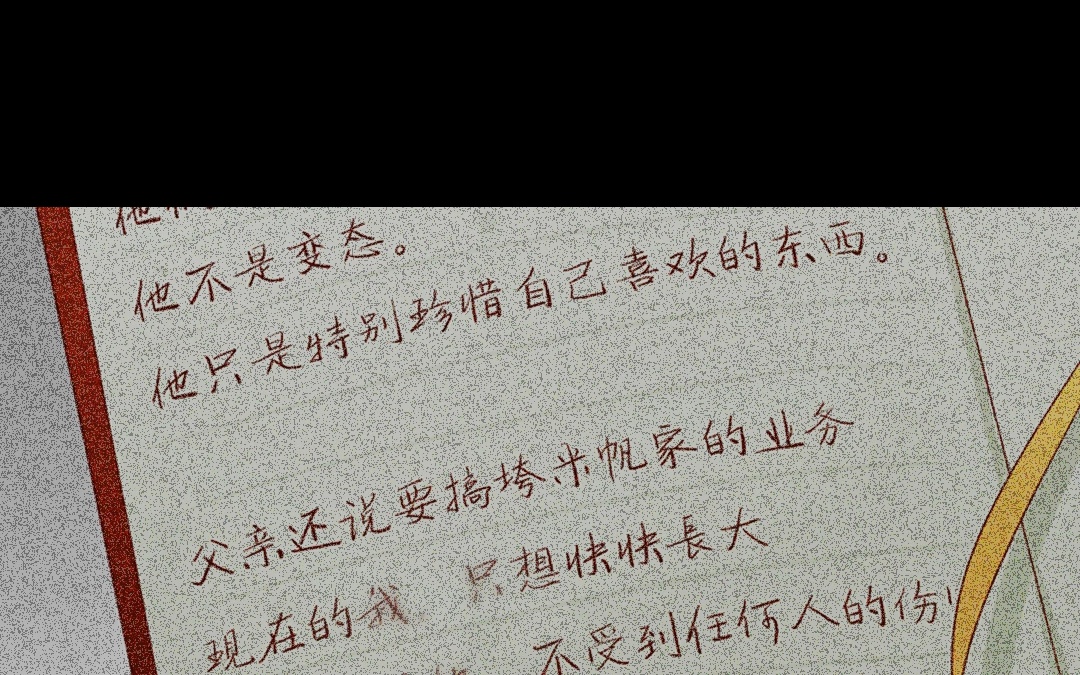 他
他不是变态。
他只是特别珍惜自己喜欢的东西。
父亲还说要搞垮米帆家的业务
現在的我 只想快快長大
不受到任何人的伤